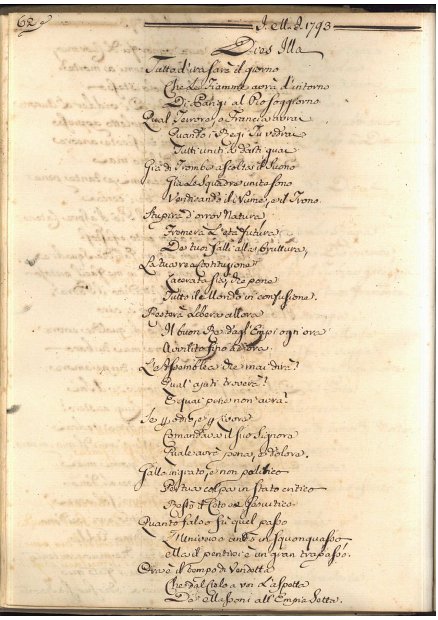 62
1793
Dies Illa
Tutto d'ira sarà il giorno
Che Le Fiamme avrà d'intorno
Di Parigi al Rio soggiorno
Qual Terrore, o Francia avrai
Quando i Regi Tu vedrai
Tutti uniti a darti guai
Già di Trombe ascolta il suono
Già le Squadre unite sono
Vendicando il Nume, e il Trono
Stupirà d'orror Natura
Fremerà L'età futura
De tuoi falli alla bruttura,
La tua rea Costituzione
Lacerata sia, che pone
Tutto il Mondo in confusione.
Resterà allora
Il buon Re dagl'Empi ogn'ora
Avvilito fino
L'Assemblea che mai dirà?
Qual' ajuti troverà?
E quai pene non avrà?
Se
Comandava il suo Signora
Quale avrà pena, e dolore.
Gallo ingrato, e non politico
Per tua colpa in stato critico
Resto il Ceto
Quanto falso fù quel passo
L'Universo andò in sconquasso
e il pentirvi è un gran trapasso.
Ora è il tempo di Vendetta
Che dal Cielo a voi L'aspetta
all'Empia Setta.